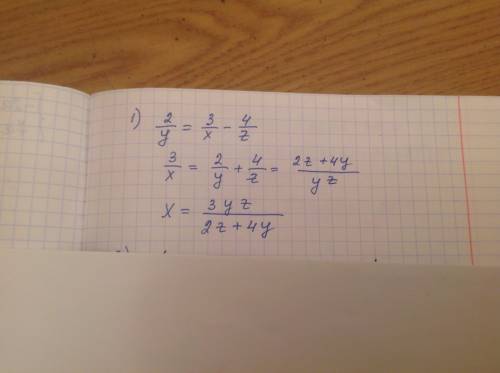 1) 2/y = 3/x - 4/z
3/x = 2/y + 4/z = (2z + 4y)/(yz)
x = (3yz)/(2z + 4y)